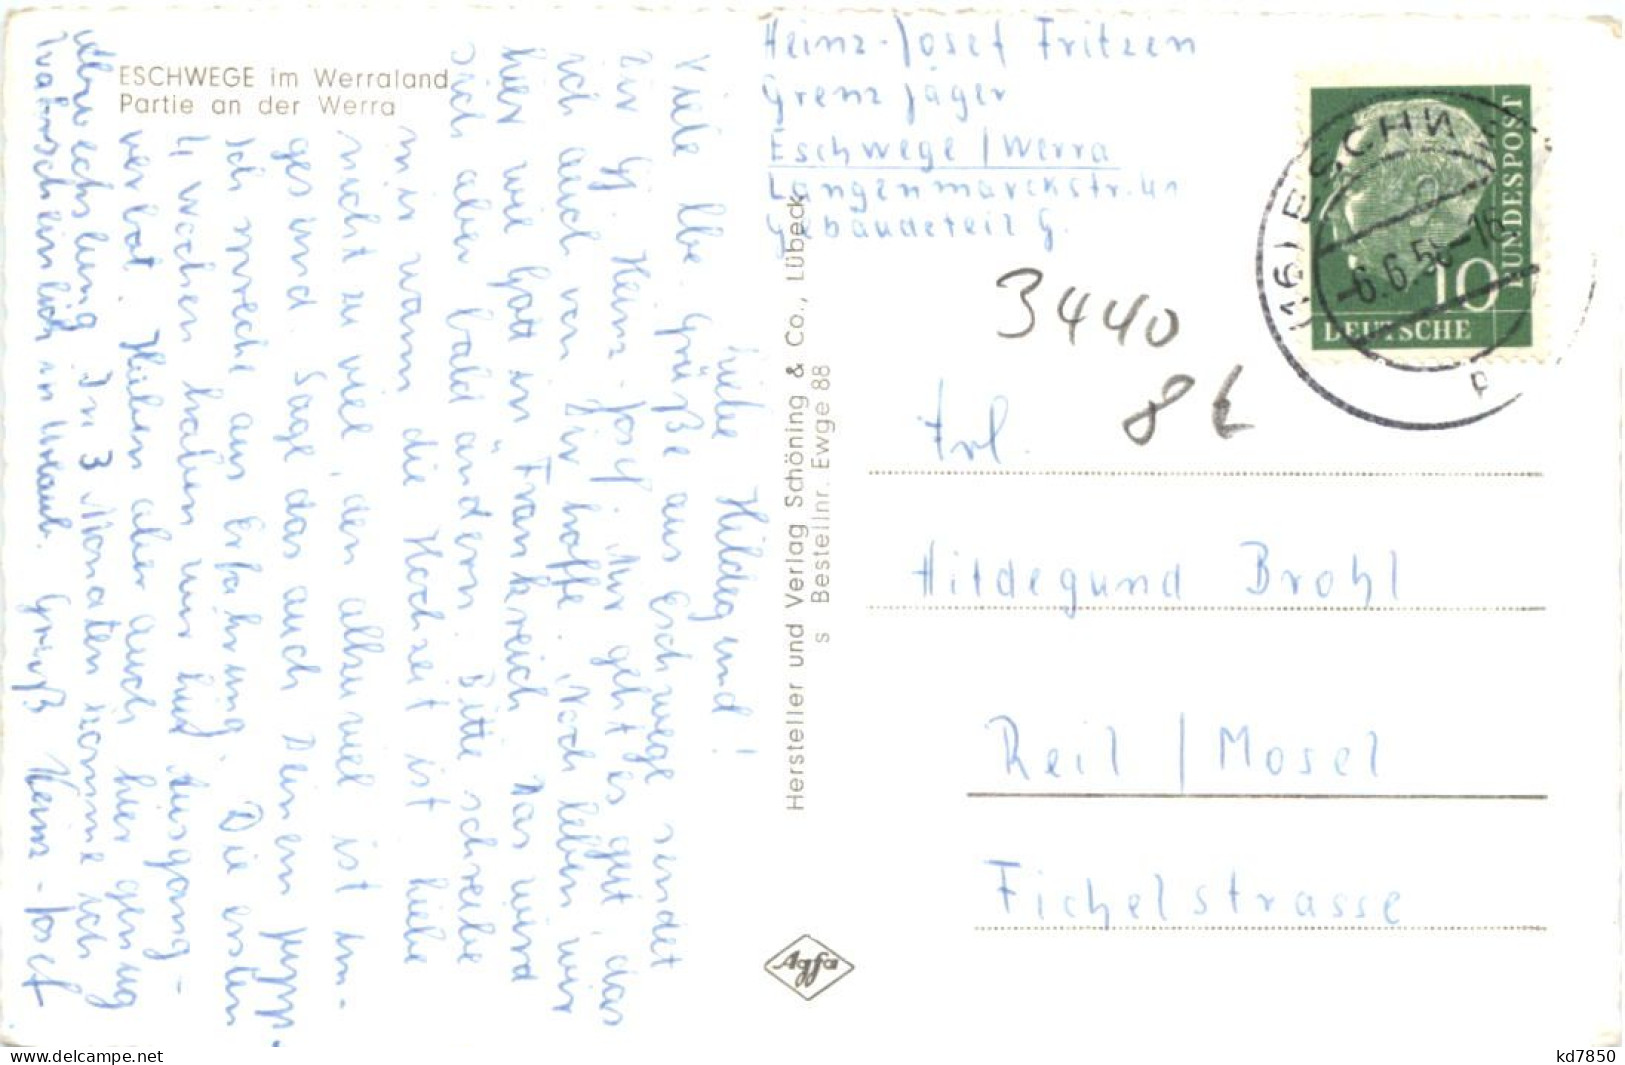 ESCHWEGE im Werraland
Partie an der Werra
Heinz-Josef Fritzen
Grenzjäger
Eschwege / Werra
Langenmarckstr. 41
Gebäudeteil G.
3440
DEUTSCHE
BUNDESPOST
10
(16) ESCHW
-6.6.56-16
Frl.
Hildegund Brohl
Reil / Mosel
Fichelstrasse
Hersteller und Verlag Schöning & Co., Lübeck
S Bestellnr. Ewge 88
Agfa
Liebe Hildegund!
Viele lbe. Grüße aus Eschwege sendet
Dir Heinz-Josef. Mir geht es gut, das
ich auch von Dir hoffe. Noch leben wir
hier wie Gott in Frankreich. Das wird
sich aber bald ändern. Bitte schreibe
mir wann die Hochzeit ist. Liebe
nicht zu viel, denn allzuviel ist un-
gesund. Sage das auch Deinem
Ich spreche aus Erfahrung. Die ersten
4 Wochen haben wir hier Ausgang-
verbot. Haben aber auch hier genug
Abwechslung. In 3 Monaten komme ich
wahrscheinlich in Urlaub. Gruß Heinz-Josef
www.delcampe.net
kd7850